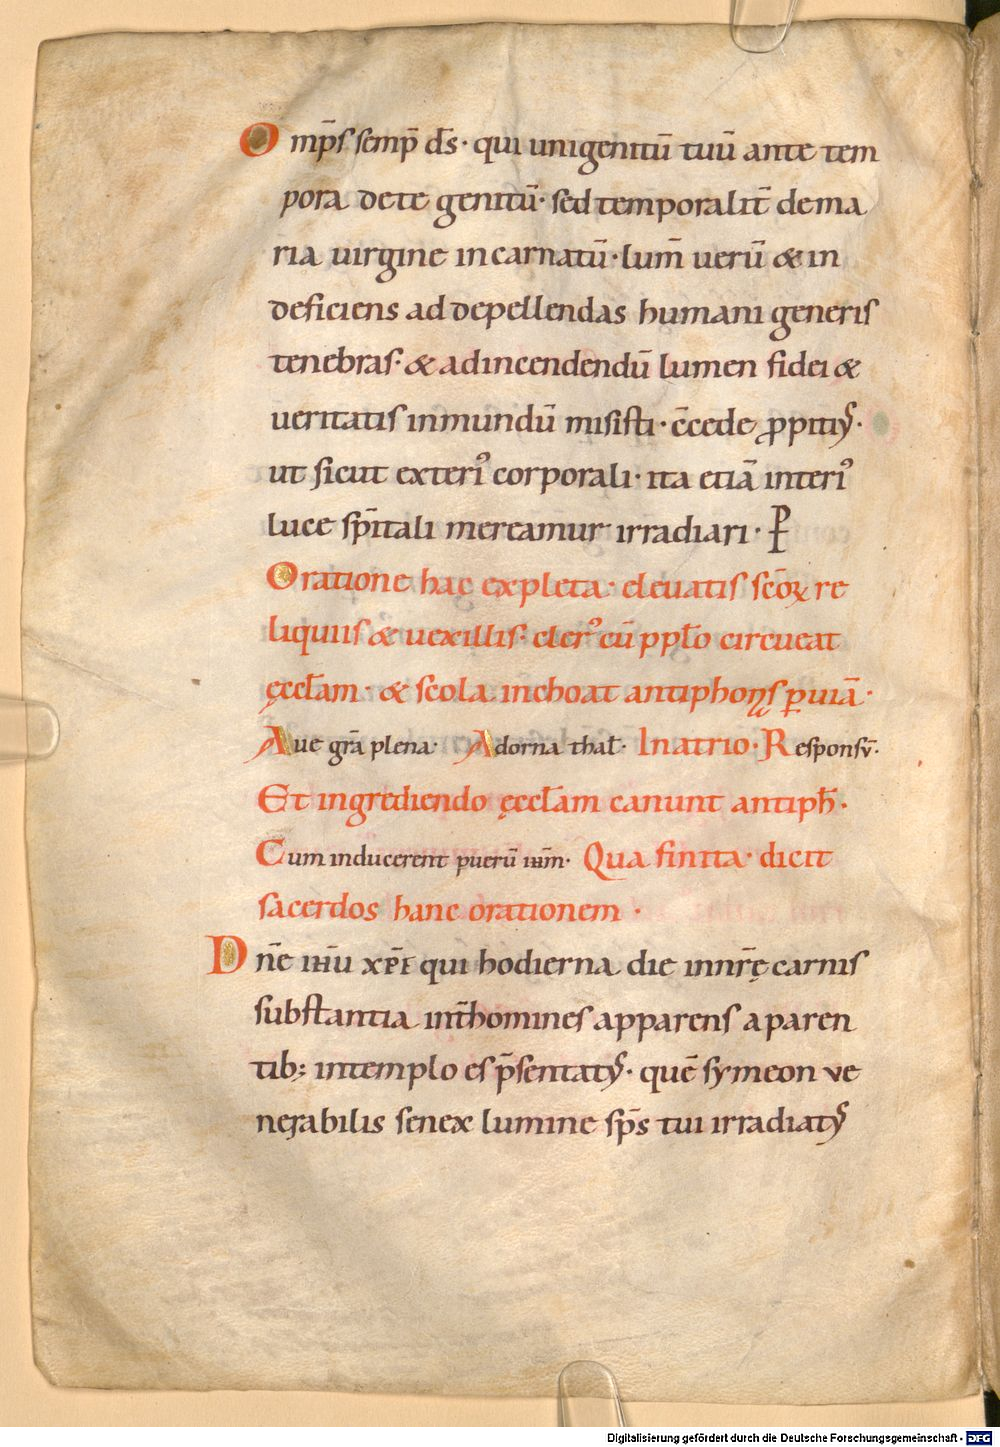 Omp̄s semp̄ d̄s · qui unigenitū tuū ante tem
pora dete genitū · sed temporalit̄ dema
ria uirgine incarnatū · lum̄ uerū & in
deficiens ad depellendas humani generis
tenebras · & adincendendū lumen fidei &
ueritatis inmundū misisti · c̄cede ꝓpitiꝰ ·
ut sicut exteriꝰ corporali · ita etiā interiꝰ
luce sp̄itali mereamur irradiari · P
Oratione hac expleta · eleuatis sc̄oꝝ re
liquiis & uexillis · clerꝰ cū ppl̄o circueat
ęccl̄am · & scola inchoat antiphonas ꝑ uiā ·
Aue gr̄a plena · Adorna thal̄ · In atrio · Responsū ·
Et ingrediendo ęccl̄am canunt antiph̄ ·
Cum inducerent puerū ih̄m · Qua finita · dicit
sacerdos hanc orationem ·
Dn̄e ih̄u xp̄e qui hodierna die innr̄ę carnis
substantia int̄ homines apparens a paren
tib; intemplo es p̄sentatꝰ · quē symeon ue
nerabilis senex lumine sp̄s tui irradiatꝰ
Digitalisierung gefördert durch die Deutsche Forschungsgemeinschaft - DFG